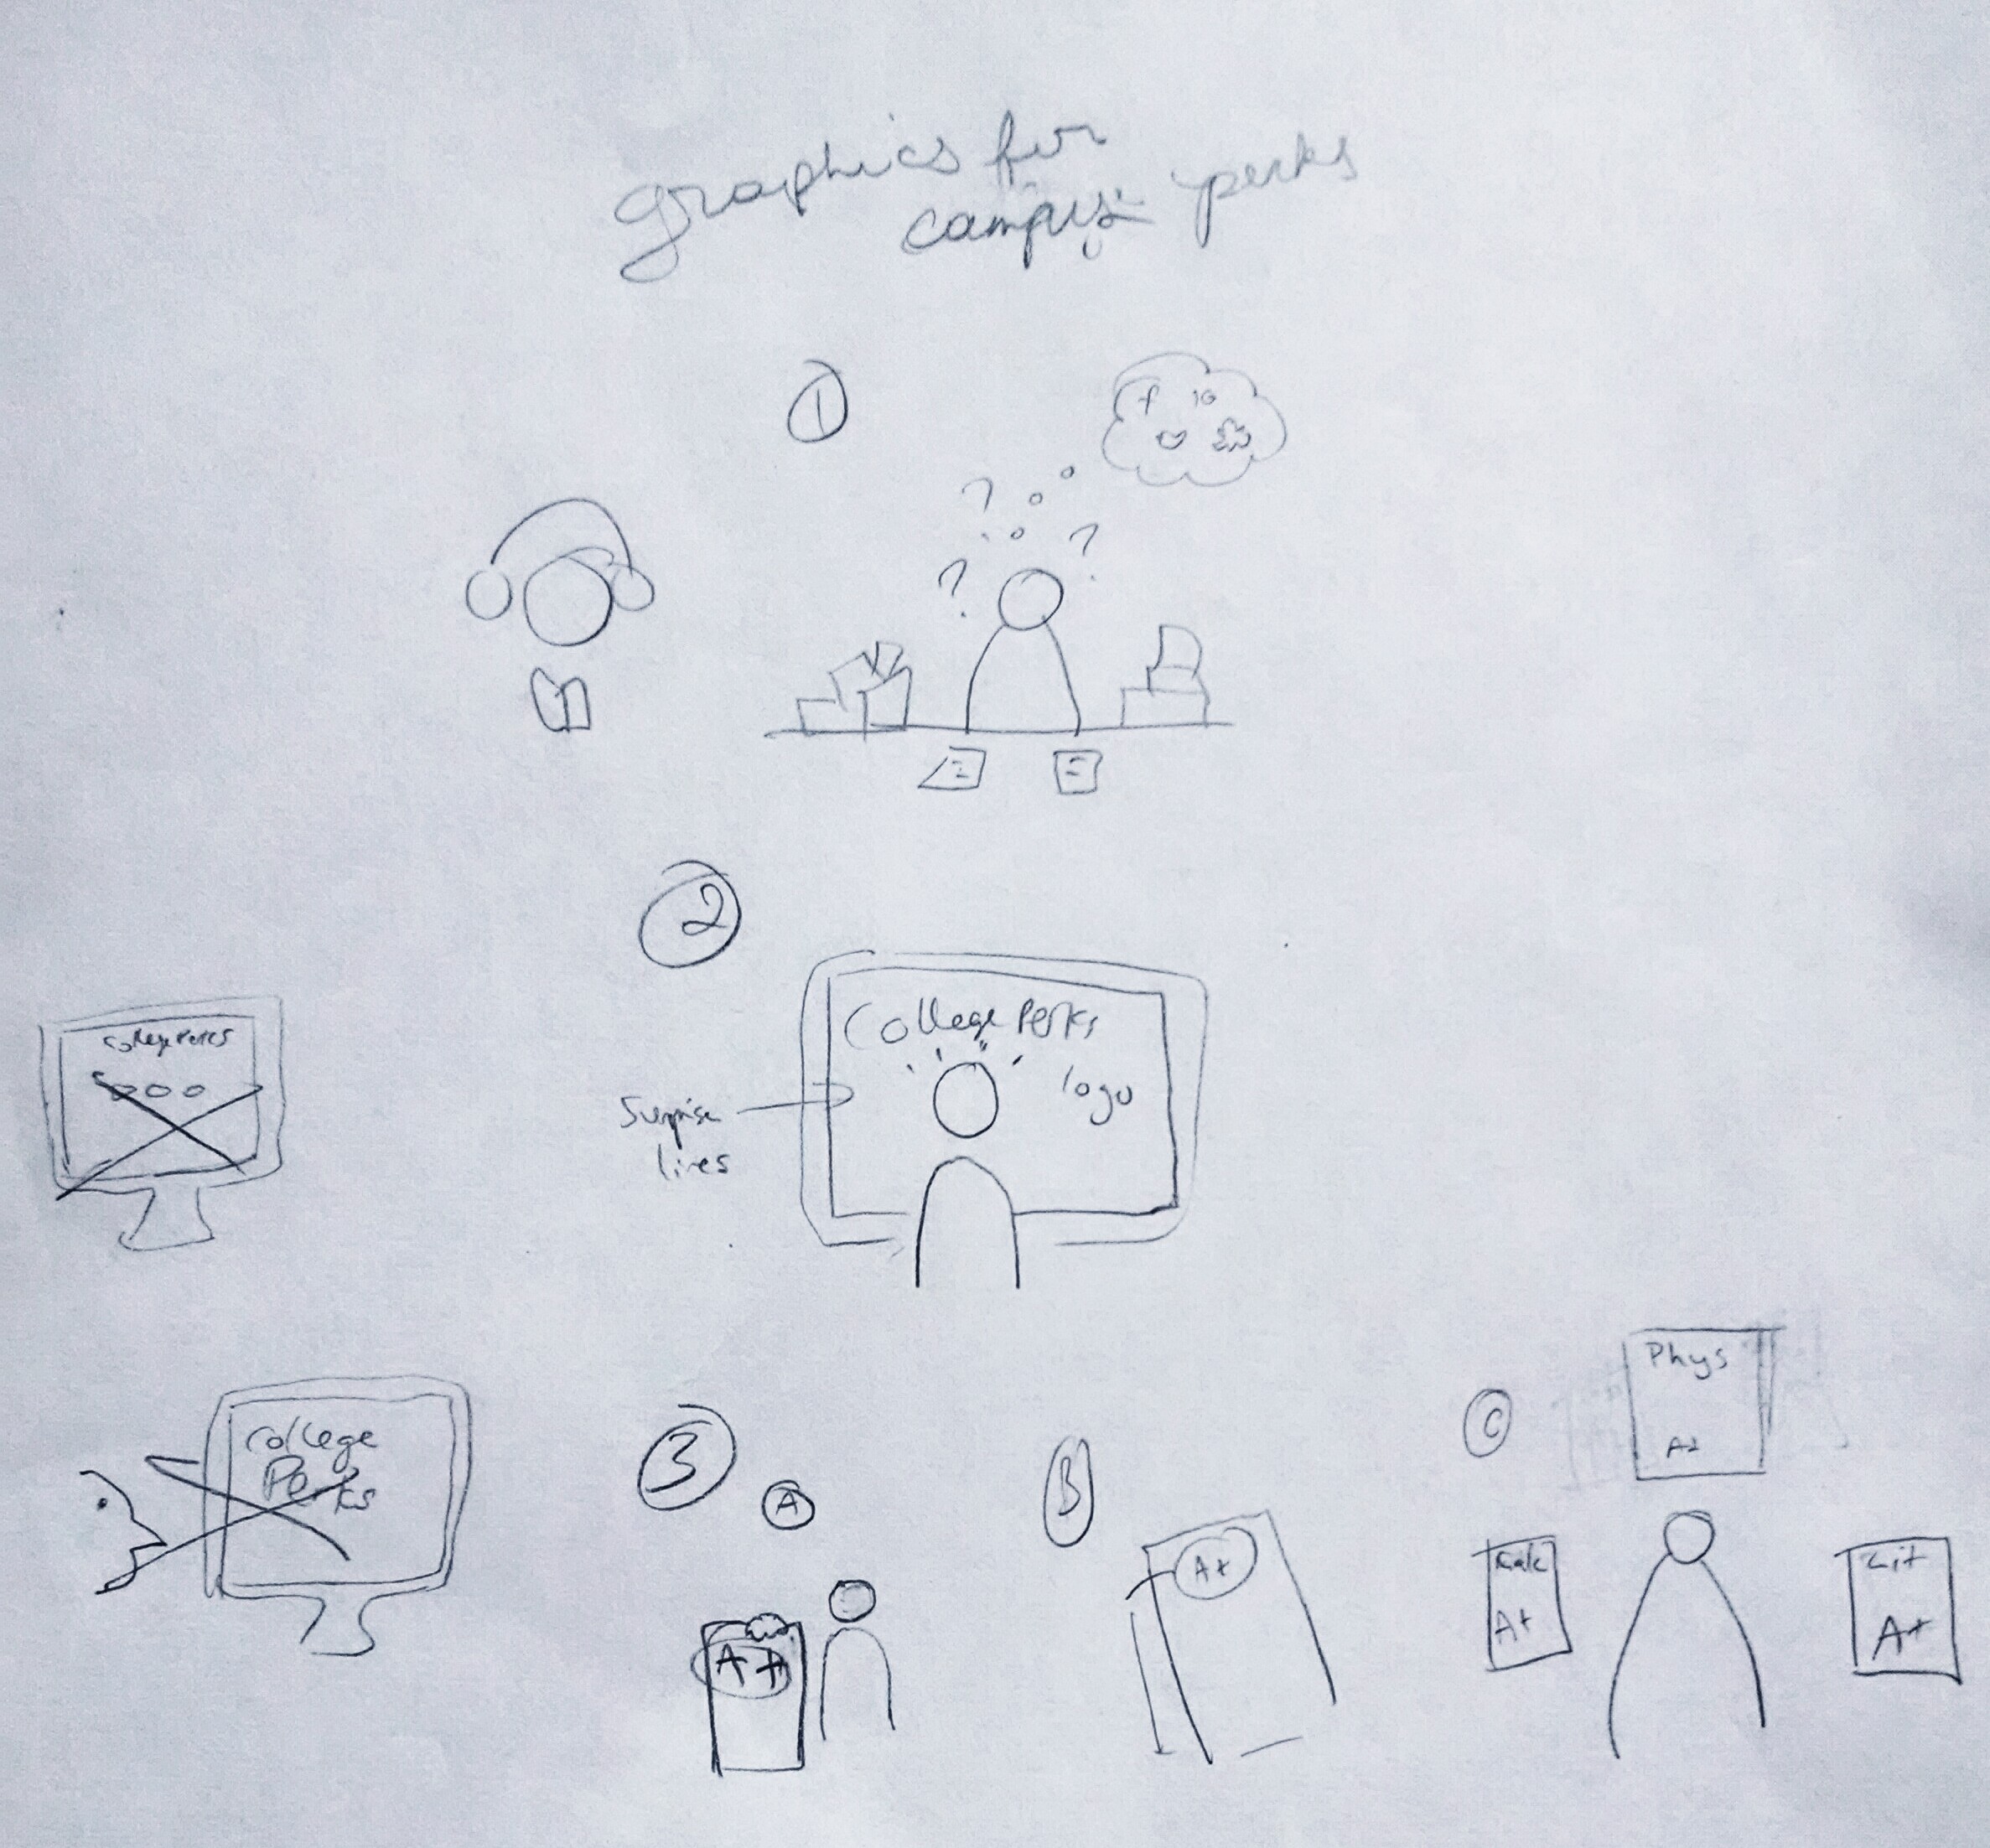 graphics for
campus perks
1
f IG
? ? ?
2
College Perks
logo
Surprise
lines
College Perks
College
Perks
3
A
A+
B
A+
C
Phys
A+
Calc
A+
Lit
A+